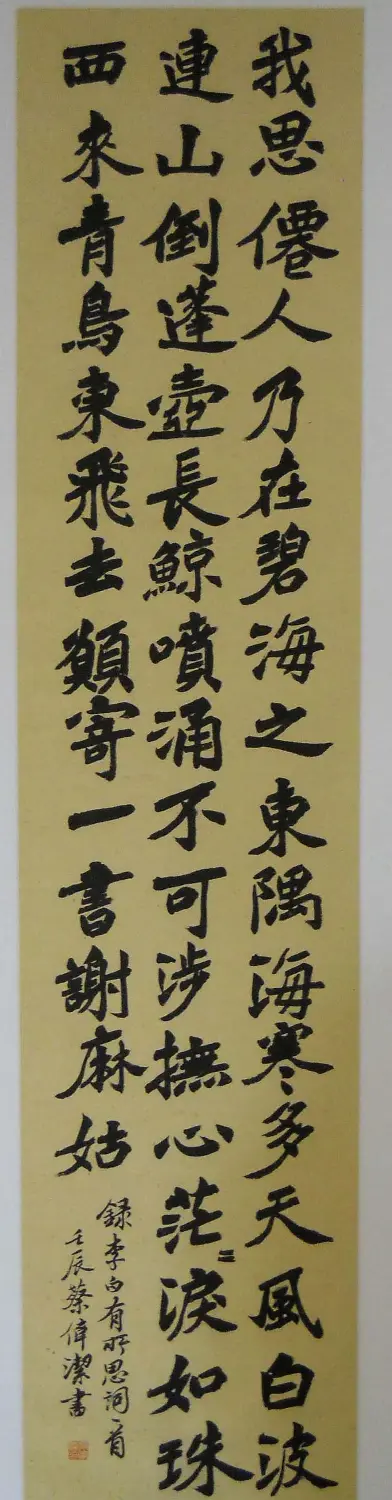 我思僊人乃在碧海之東隅海寒多天風白波
連山倒蓬壺長鯨噴涌不可涉撫心茫〻淚如珠
西來青鳥東飛去願寄一書謝麻姑
録李白有所思詞一首
壬辰蔡偉潔書